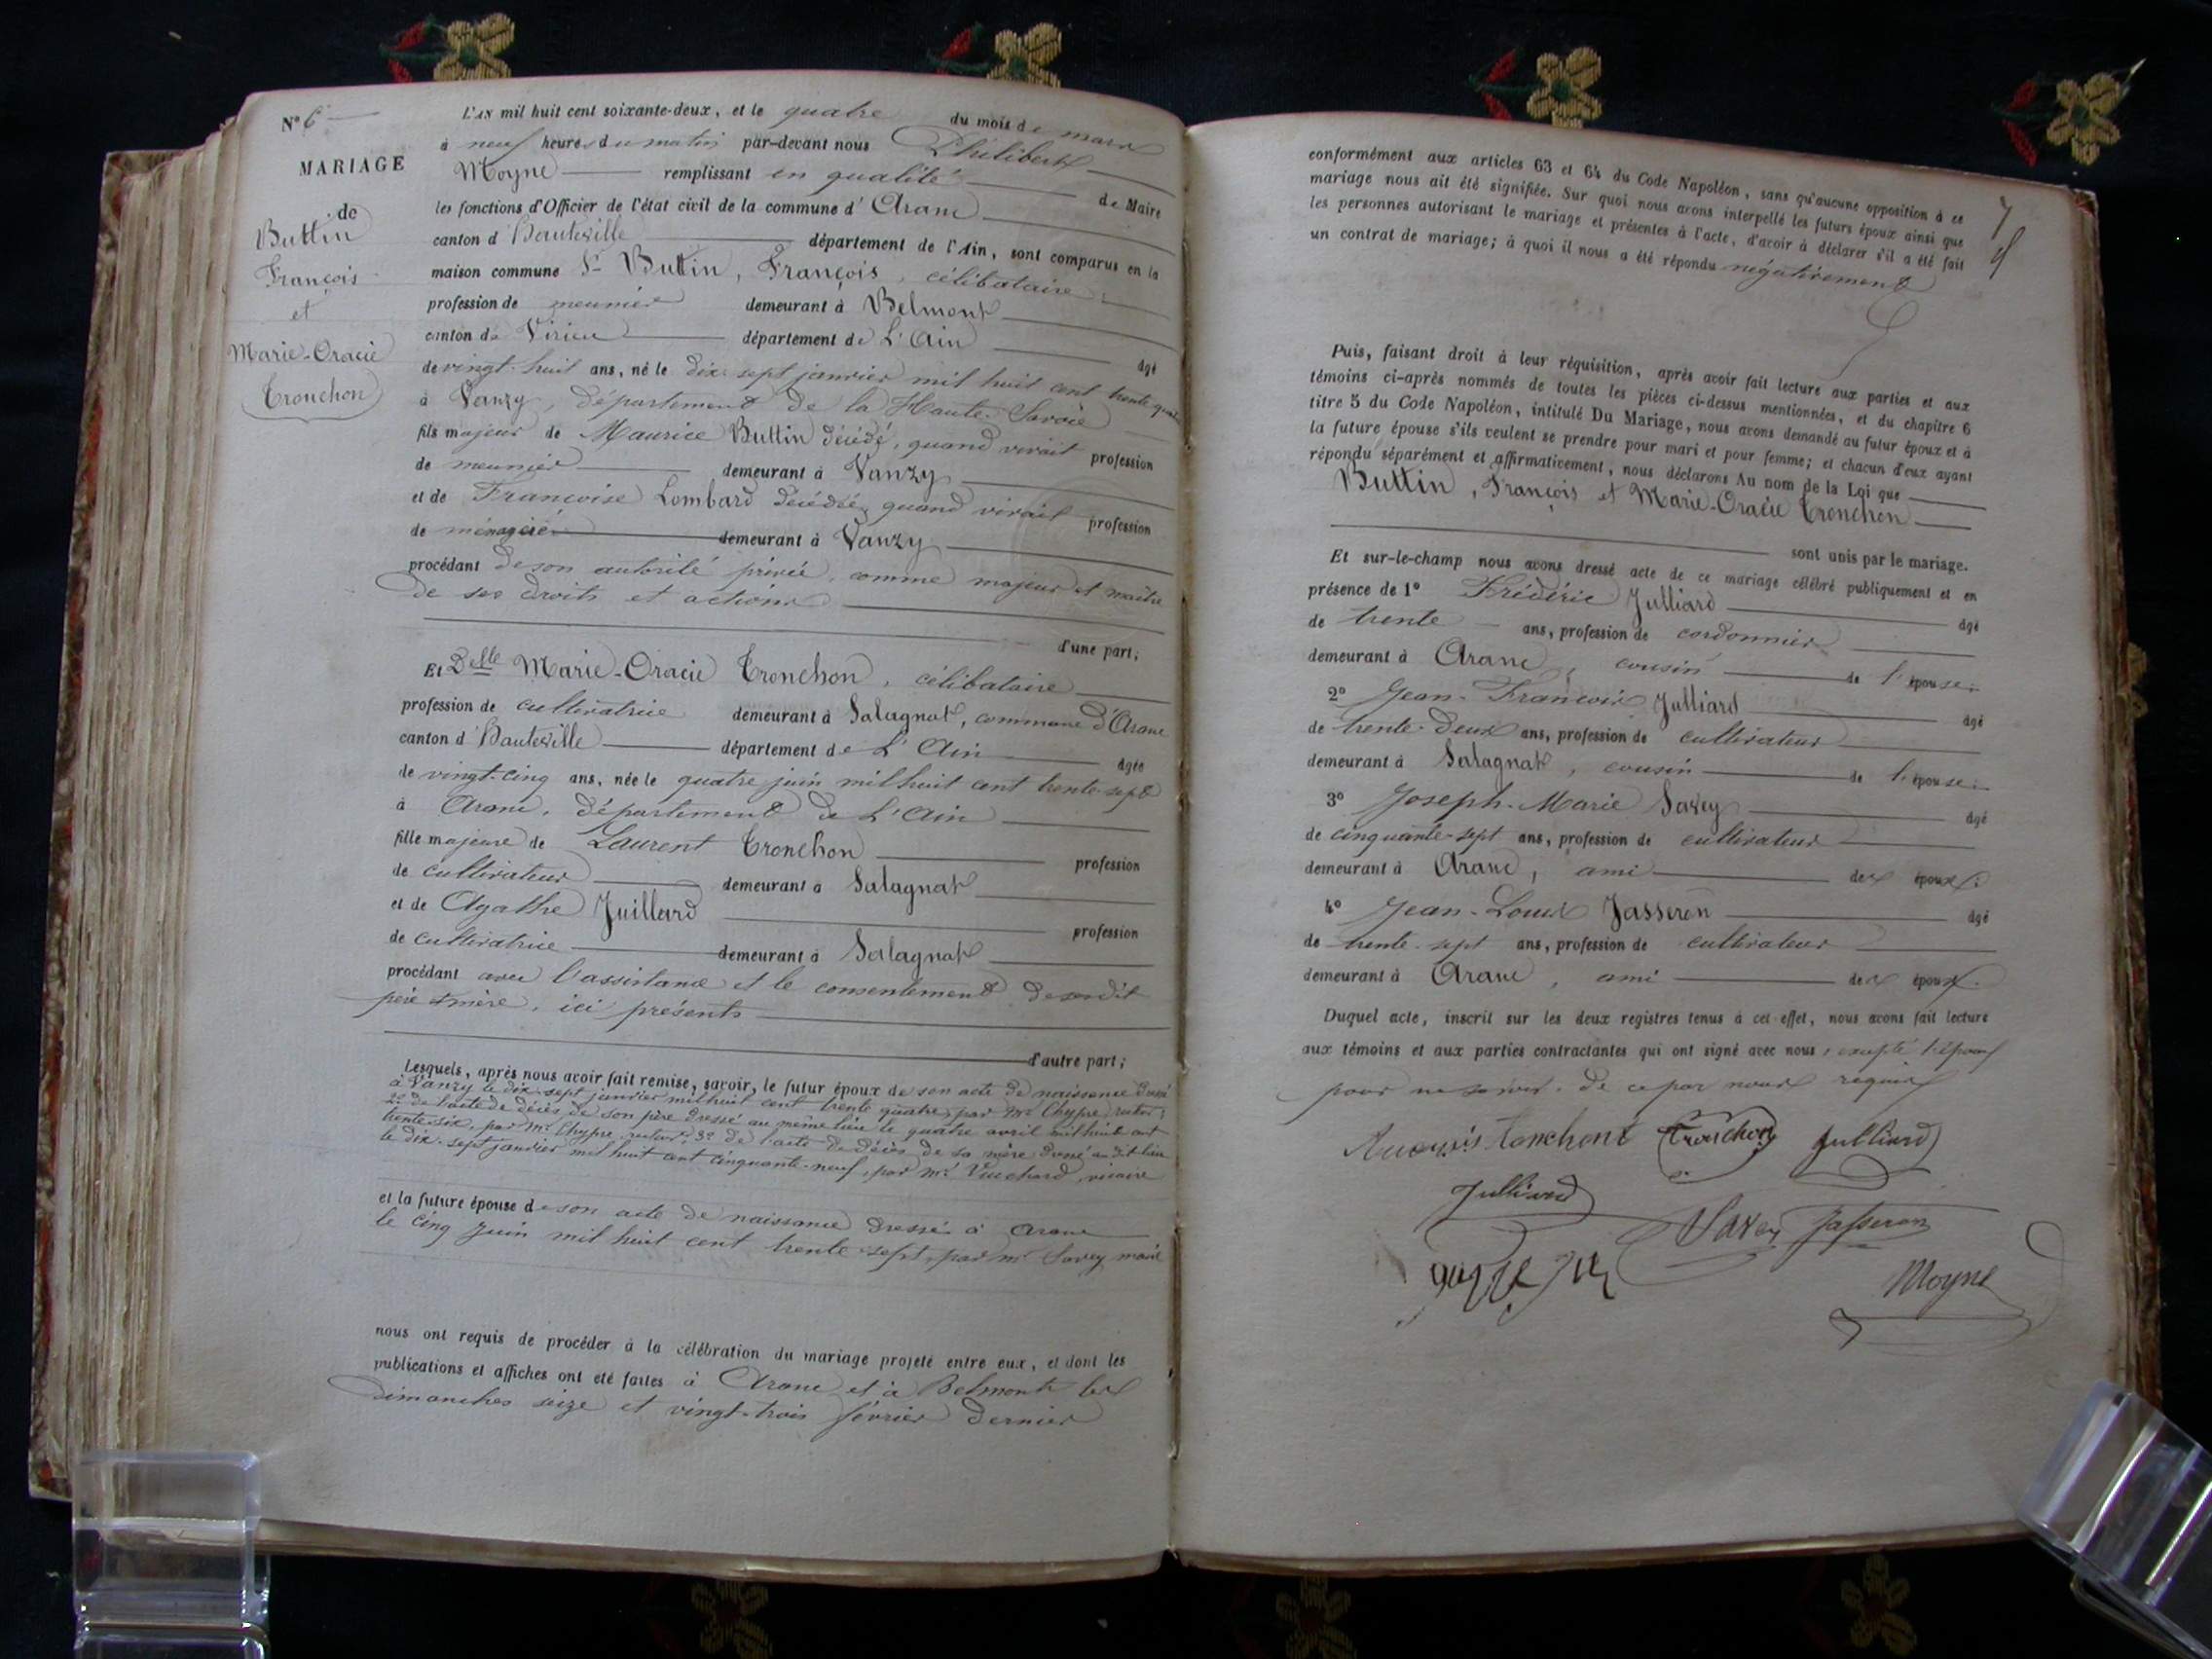 N° 6
MARIAGE
de
Buttin
François
et
Marie-Oracie
Tronchon
L'AN mil huit cent soixante-deux, et le quatre du mois de mars
à neuf heures du matin par-devant nous Philibert
Moyne remplissant en qualité de Maire
les fonctions d'Officier de l'état civil de la commune d'Aranc
canton d'Hauteville département de l'Ain, sont comparus en la
maison commune Sr Buttin, François, célibataire
profession de meunier demeurant à Belmont
canton de Virieu département de L'Ain âgé
de vingt-huit ans, né le dix-sept janvier mil huit cent trente quatre
à Vanzy, département de la Haute-Savoie
fils majeur de Maurice Buttin décédé, quand vivait profession
de meunier demeurant à Vanzy
et de Françoise Lombard décédée, quand vivait profession
de ménagère demeurant à Vanzy
procédant de son autorité privée, comme majeur et maître
de ses droits et actions
d'une part;
Et Delle Marie-Oracie Tronchon, célibataire
profession de cultivatrice demeurant à Salagnat, commune d'Aranc
canton d'Hauteville département de L'Ain âgée
de vingt-cinq ans, née le quatre juin mil huit cent trente-sept
à Aranc, département de L'Ain
fille majeure de Laurent Tronchon profession
de cultivateur demeurant à Salagnat
et de Agathe Juillard profession
de cultivatrice demeurant à Salagnat
procédant avec l'assistance et le consentement de sesdits
père et mère, ici présents
d'autre part;
Lesquels, après nous avoir fait remise, savoir, le futur époux de son acte de naissance dressé
à Vanzy le dix-sept janvier mil huit cent trente quatre, par Mr Chypre, recteur;
2° de l'acte de décès de son père dressé au même lieu le quatre avril mil huit cent
trente-six, par Mr Chypre, recteur; 3° de l'acte de décès de sa mère dressé au dit lieu
le dix-sept janvier mil huit cent cinquante-neuf, par Mr Vuichard, vicaire
et la future épouse de son acte de naissance dressé à Aranc
le cinq juin mil huit cent trente-sept, par mr Savey maire
nous ont requis de procéder à la célébration du mariage projeté entre eux, et dont les
publications et affiches ont été faites à Aranc et à Belmont les
dimanches seize et vingt-trois février dernier
conformément aux articles 63 et 64 du Code Napoléon, sans qu'aucune opposition à ce
mariage nous ait été signifiée. Sur quoi nous avons interpellé les futurs époux ainsi que
les personnes autorisant le mariage et présentes à l'acte, d'avoir à déclarer s'il a été fait
un contrat de mariage; à quoi il nous a été répondu négativement
Puis, faisant droit à leur réquisition, après avoir fait lecture aux parties et aux
témoins ci-après nommés de toutes les pièces ci-dessus mentionnées, et du chapitre 6
titre 5 du Code Napoléon, intitulé Du Mariage, nous avons demandé au futur époux et à
la future épouse s'ils veulent se prendre pour mari et pour femme; et chacun d'eux ayant
répondu séparément et affirmativement, nous déclarons Au nom de la Loi que
Buttin, François et Marie-Oracie Tronchon
sont unis par le mariage.
Et sur-le-champ nous avons dressé acte de ce mariage célébré publiquement et en
présence de 1° Frédéric Julliard âgé
de trente ans, profession de cordonnier
demeurant à Aranc, cousin de l'épouse;
2° Jean-François Julliard âgé
de trente-deux ans, profession de cultivateur
demeurant à Salagnat, cousin de l'épouse;
3° Joseph-Marie Savey âgé
de cinquante-sept ans, profession de cultivateur
demeurant à Aranc, ami des époux;
4° Jean-Louis Jasseron âgé
de trente-sept ans, profession de cultivateur
demeurant à Aranc, ami des époux.
Duquel acte, inscrit sur les deux registres tenus à cet effet, nous avons fait lecture
aux témoins et aux parties contractantes qui ont signé avec nous, excepté l'époux
pour ne savoir, de ce par nous requis
Tronchon Julliard
Julliard
Savey Jasseron
Moyne